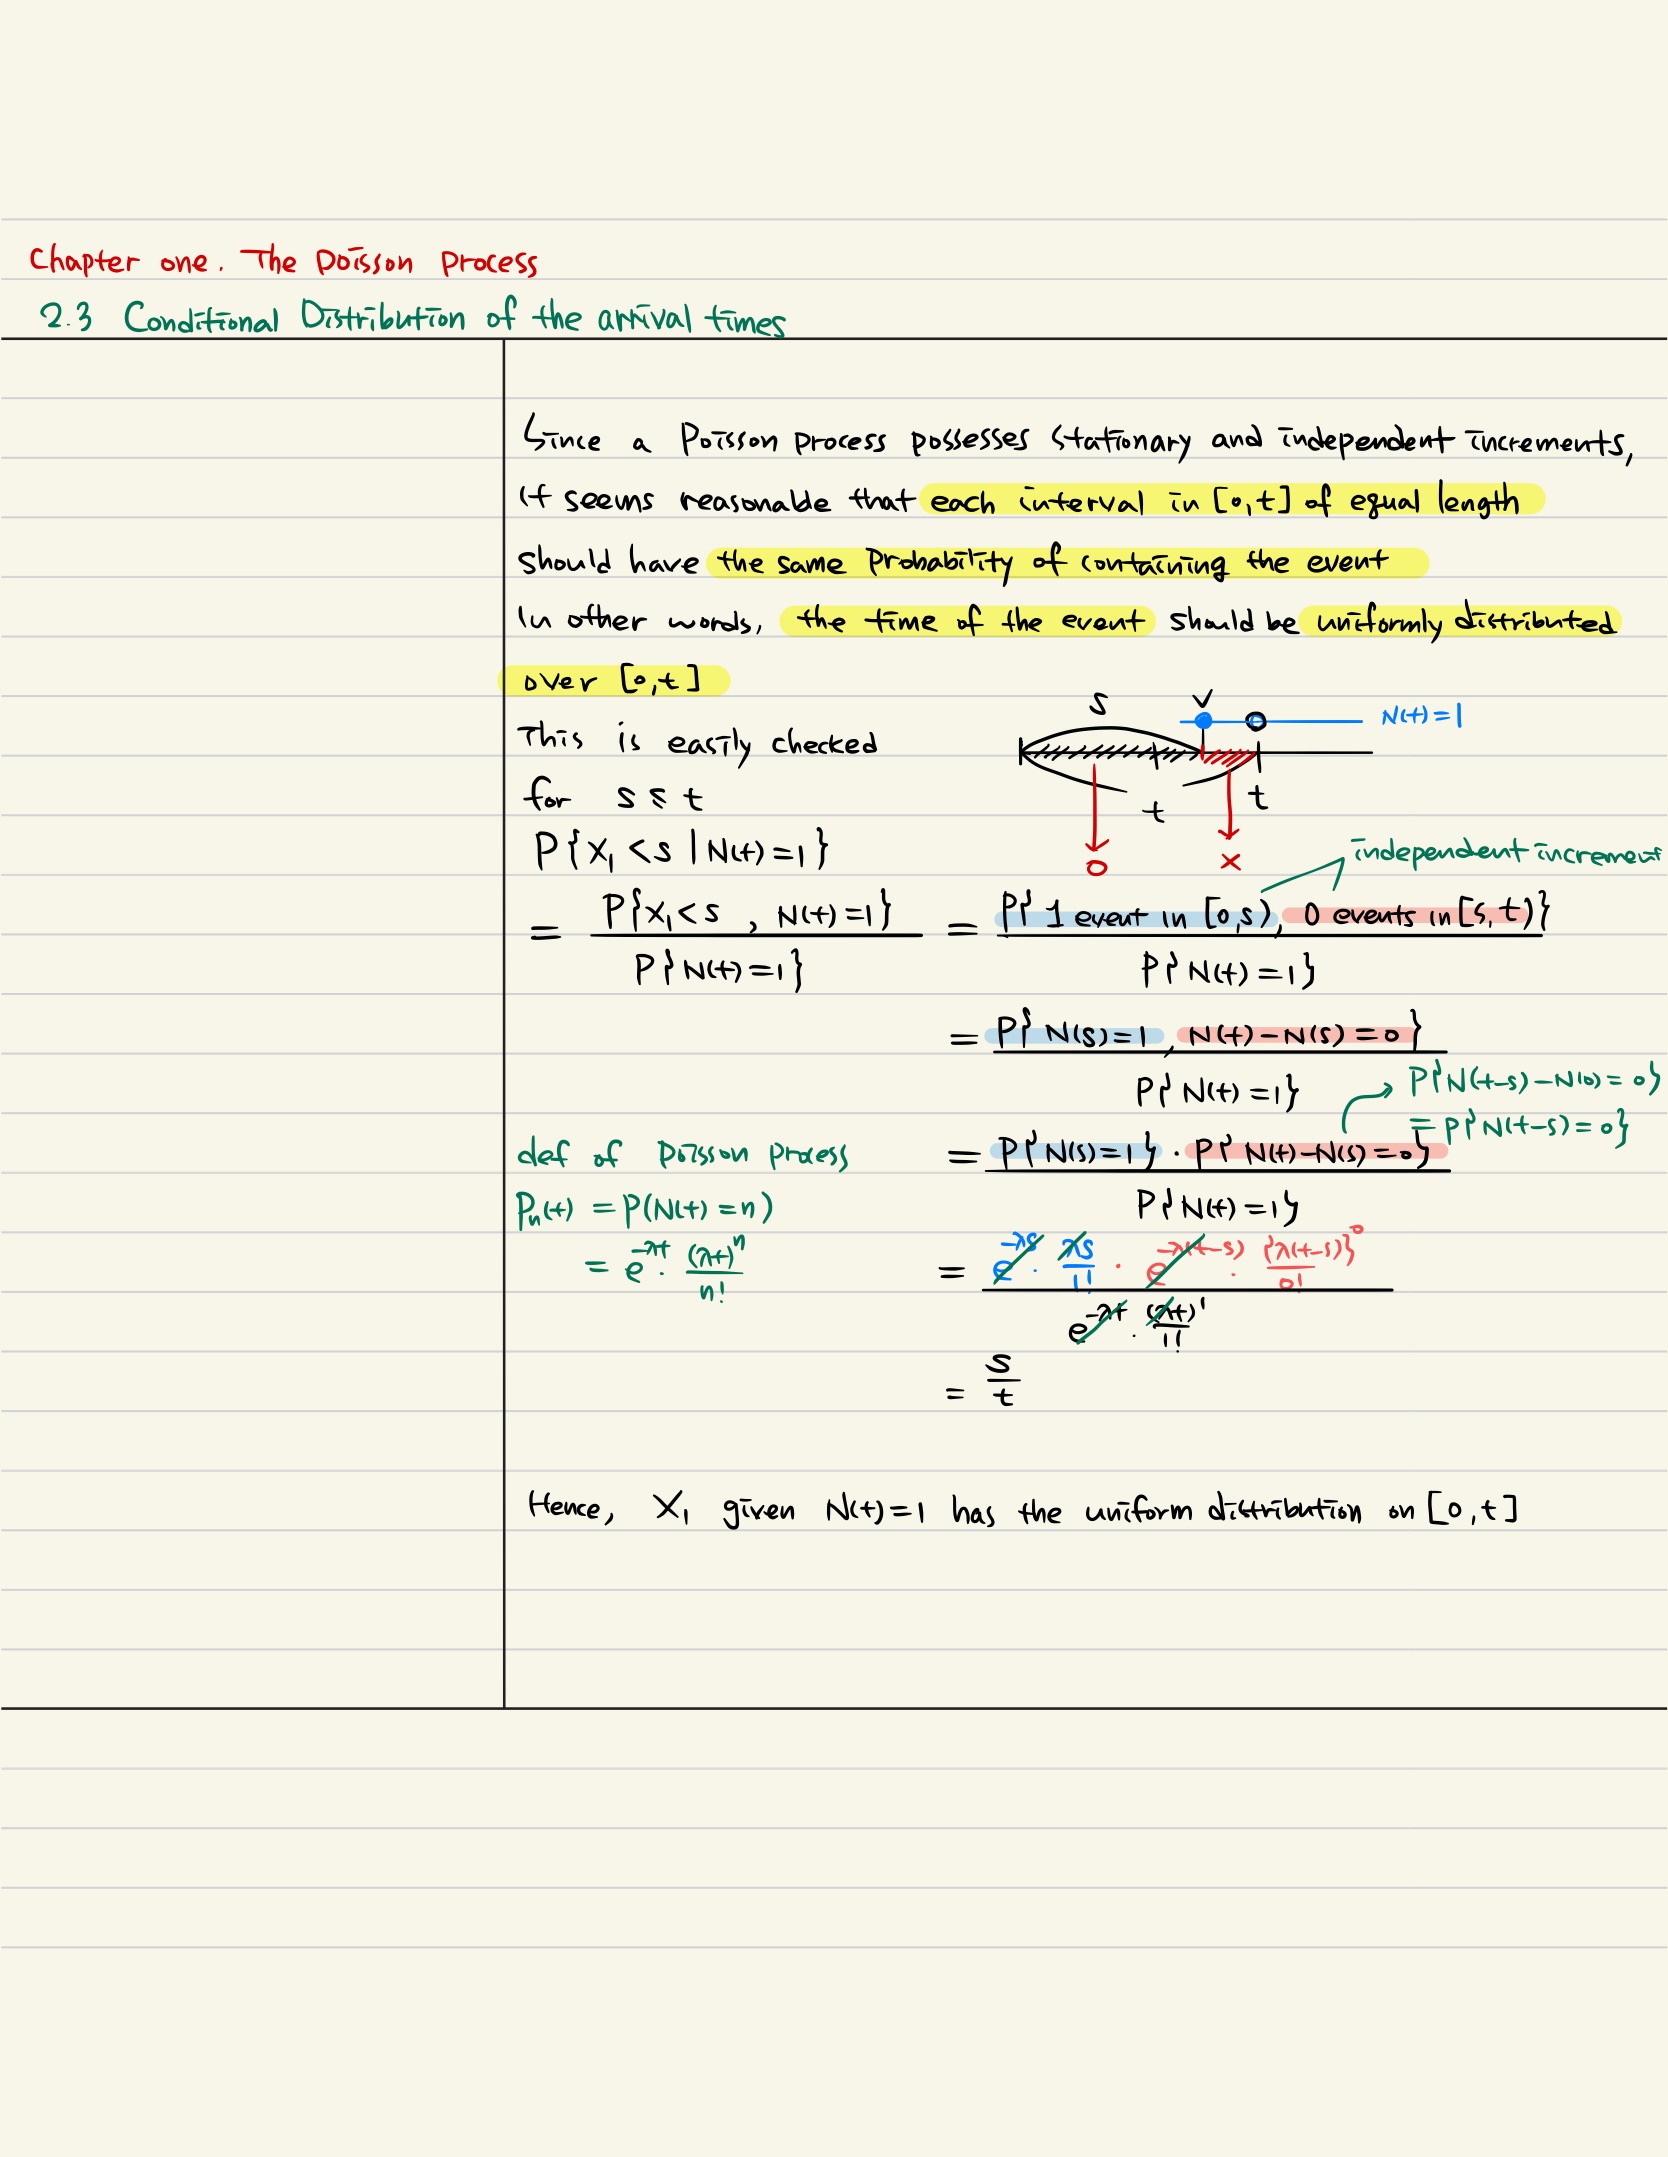 Chapter one. The Poisson Process
2.3 Conditional Distribution of the arrival times
Since a Poisson process possesses stationary and independent increments,
it seems reasonable that each interval in [0,t] of equal length
should have the same Probability of containing the event
In other words, the time of the event should be uniformly distributed
over [0,t]
S
N(t)=1
This is easily checked
for s ≤ t
t
t
P{X₁<s | N(t)=1}
0
x
independent increment
= P{X₁<s , N(t)=1} / P{N(t)=1} = P{1 event in [0,s), 0 events in [s,t)} / P{N(t)=1}
= P{N(s)=1, N(t)-N(s)=0} / P{N(t)=1}
P{N(t-s)-N(0)=0}
= P{N(t-s)=0}
def of Poisson process
= P{N(s)=1} · P{N(t)-N(s)=0} / P{N(t)=1}
Pₙ(t) = P(N(t)=n)
= e^-λt · (λt)^n / n!
= e^-λs · λs/1! · e^-λ(t-s) · {λ(t-s)}^0 / 0! / e^-λt · (λt)^1 / 1!
= s/t
Hence, X₁ given N(t)=1 has the uniform distribution on [0,t]